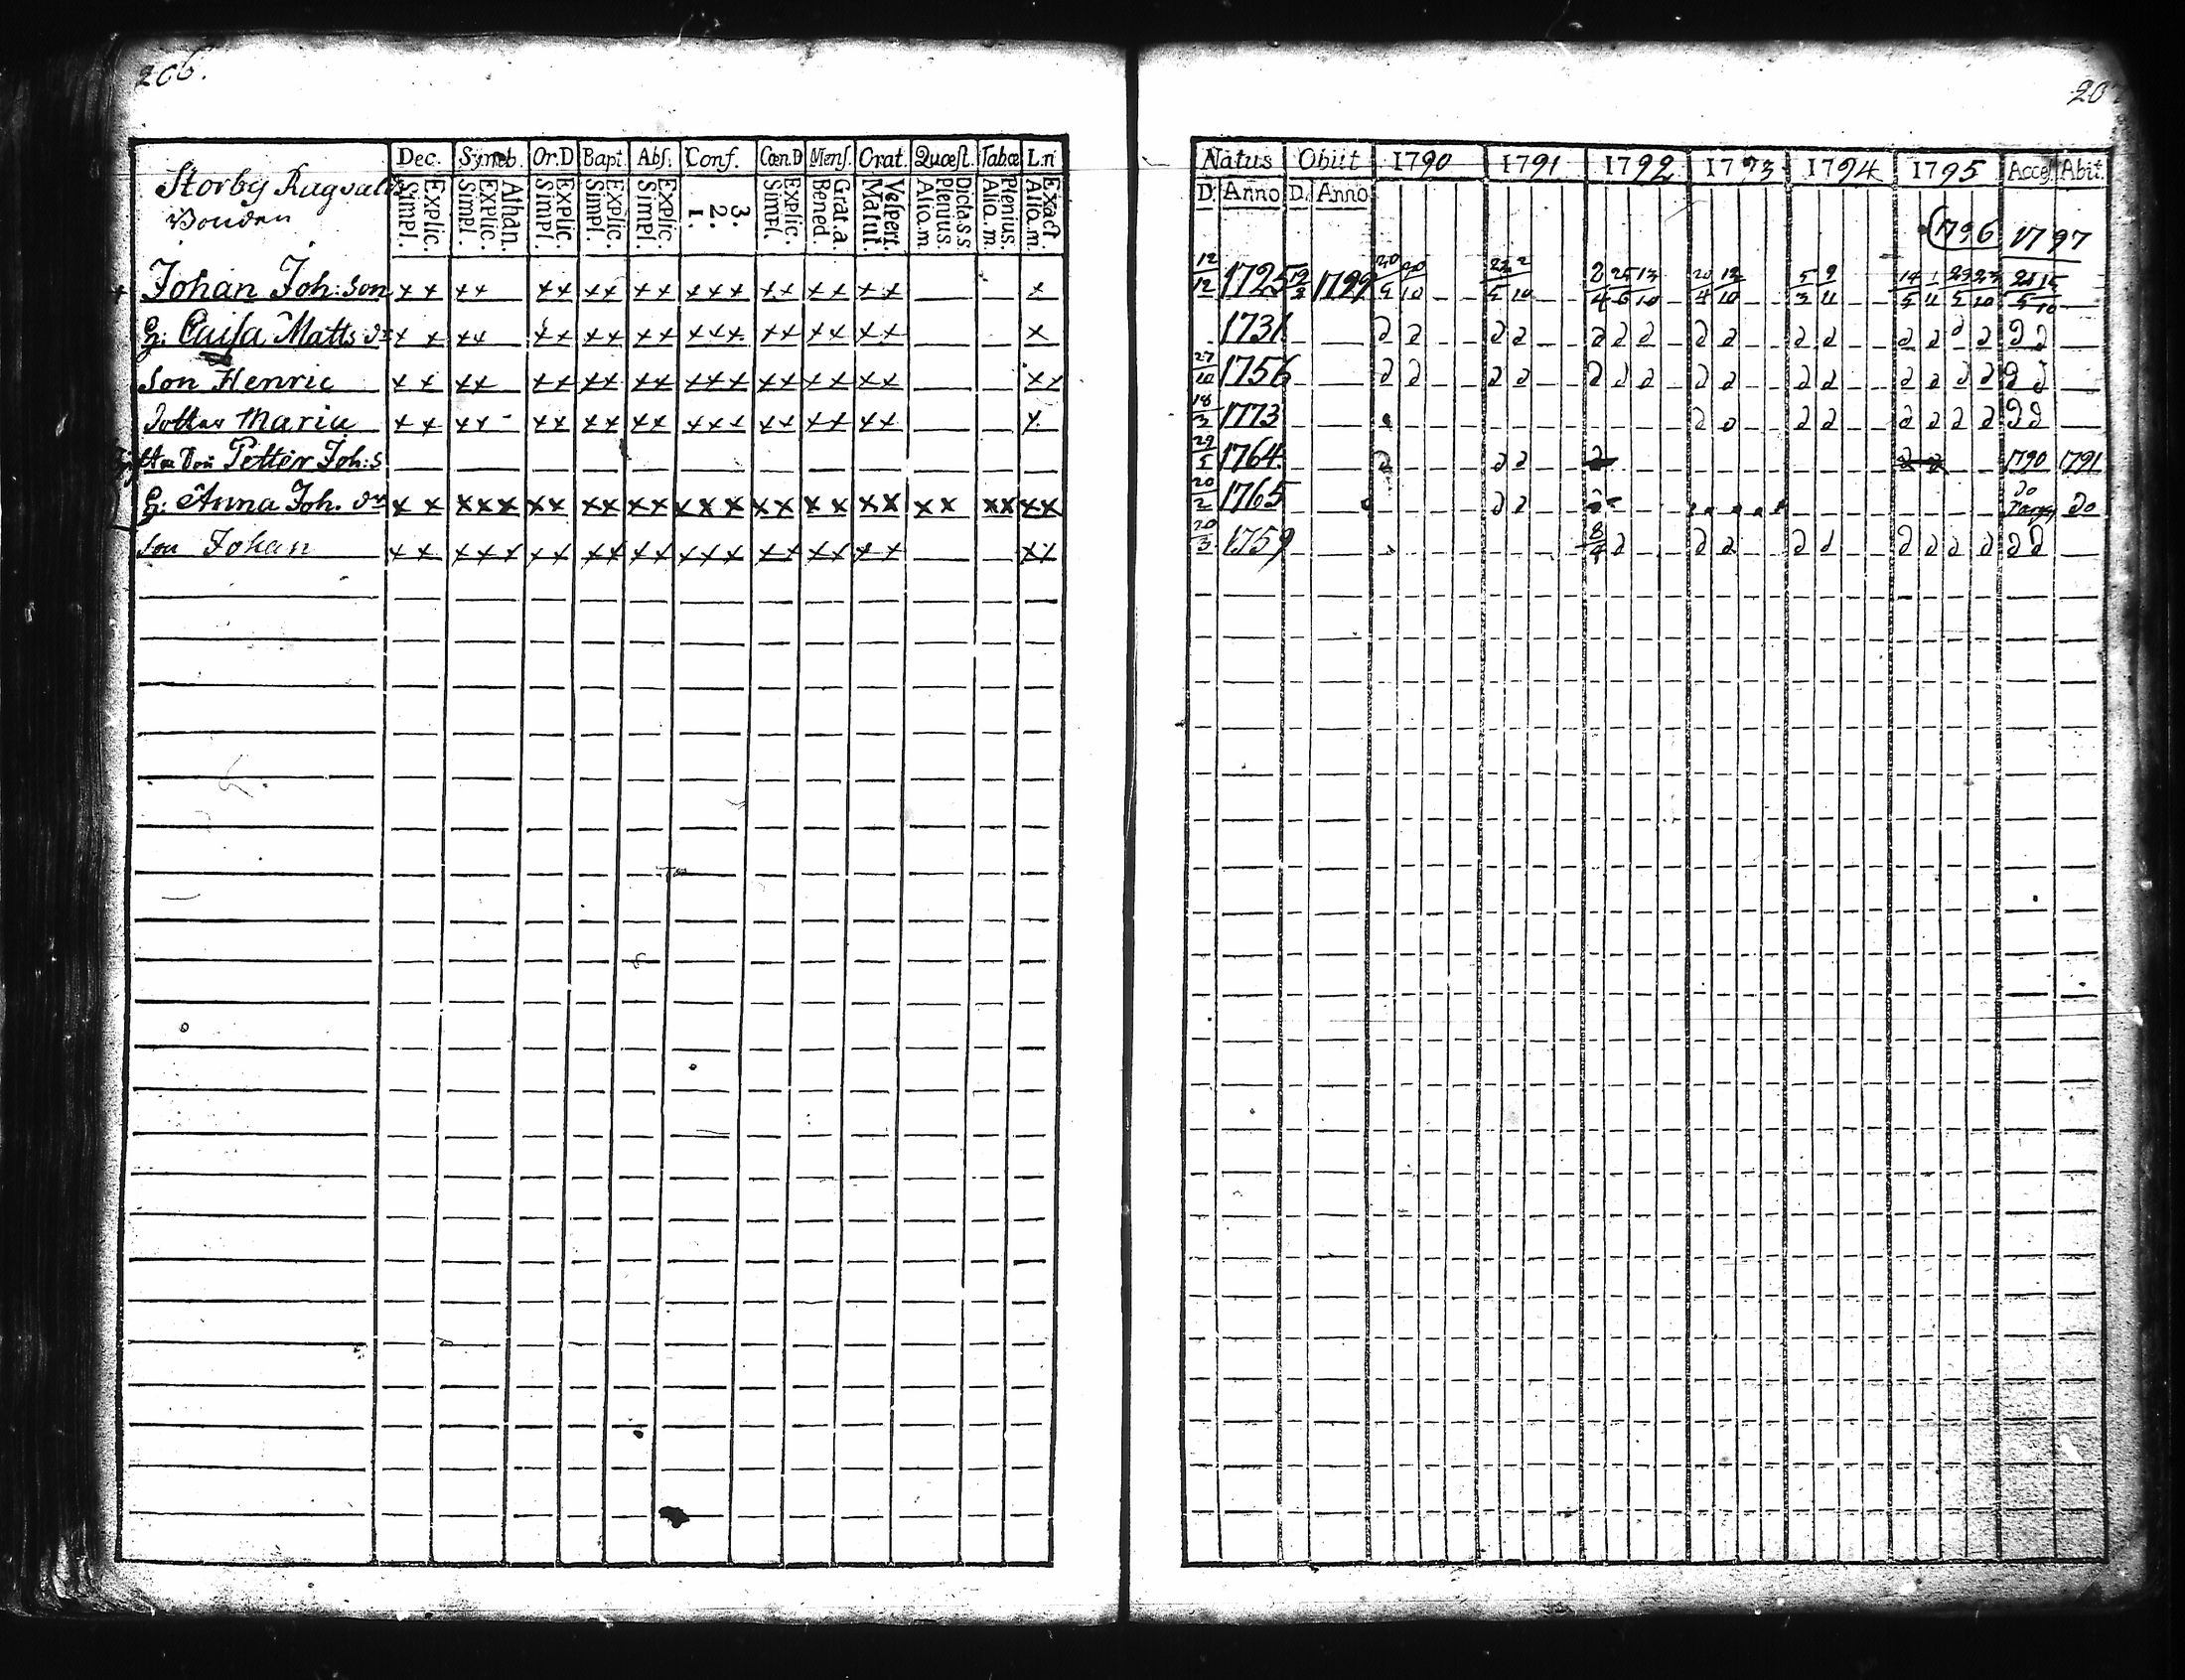 206.
Dec. Symb. Or.D Bapt. Abs. Conf. Cœn.D Mens. Orat. Quæst. Tabæ L.n
Storby Ragvalds
Bonden
Simpl. Explic. Simpl. Explic. Athan. Simpl. Explic. Simpl. Explic. Simpl. Explic. 1. 2. 3. Simpl. Explic. Bened. Grat.a Matut. Vespert. Aliq.m Plenius. Dicta.s.s Aliq.m. Plenius. Aliq.m. Exact.
Johan Joh:son x x x x x x x x x x x x x x x x x x x x
G: Caisa Matts dr x x x x x x x x x x x x x x x x x x x x
Son Henric x x x x x x x x x x x x x x x x x x x x x
dotter Maria x x x x - x x x x x x x x x x x x x x x x x
Petter Joh:s
G: Anna Joh. dr x x x x x x x x x x x x x x x x x x x x x x x x x x x x
son Johan x x x x x x x x x x x x x x x x x x x x x x
207
Natus Obiit 1790 1791 1792 1793 1794 1795 Access Abiit.
D. Anno D. Anno
1796 1797
12/12 1725 19/2 1799 20/5 20/10 22/5 2/10 2/4 25/6 13/10 20/4 12/10 5/3 9/11 14/5 1/11 29/5 23/10 21/5 15/10
1731 d d d d d d d d d d d d d d d d d
27/10 1756 d d d d d d d d d d d d d d d d d
18/3 1773 d d d d d d d d d d
29/5 1764 d d d d 1790 1791
20/2 1765 d d d do do
20/3 1759 8/4 d d d d d d d d d d d